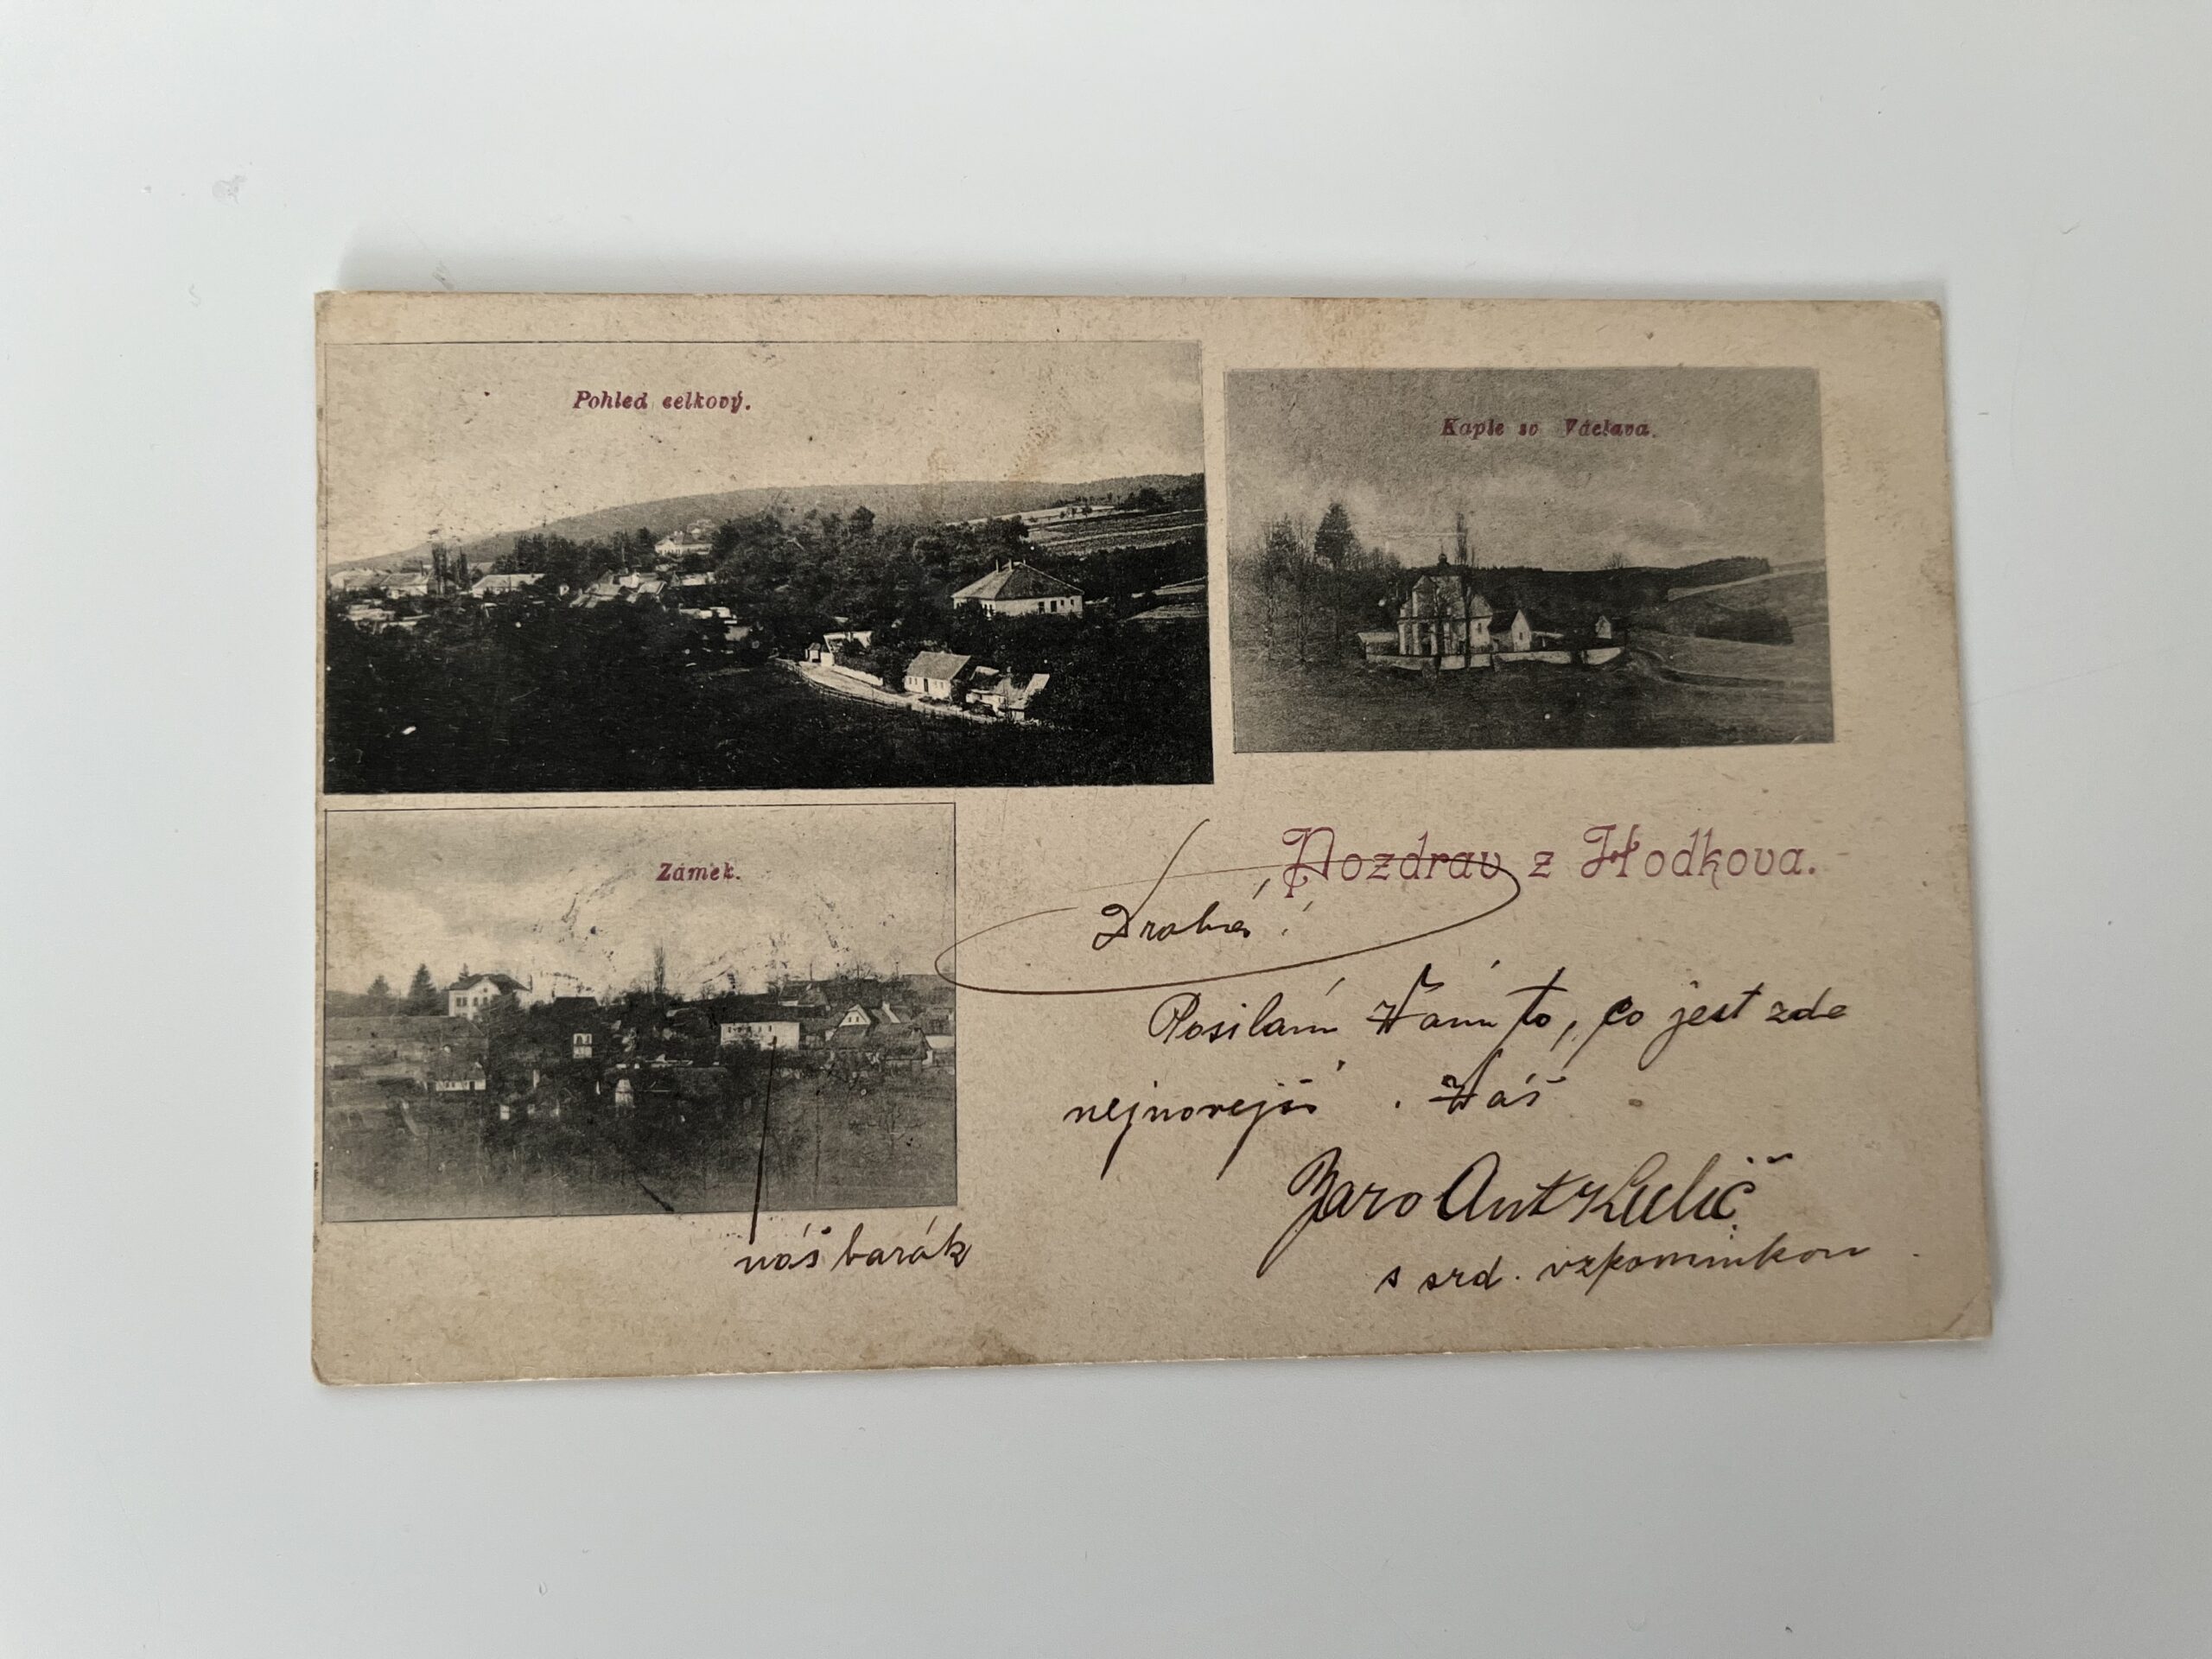 Pohled celkový.
Kaple sv Václava.
Zámek.
Pozdrav z Hodkova.
Drahá!
Posilám Vám to, co jest zde
nejnovejší. Váš
Jaro Ant
s srd. vzpomínkou
náš barák